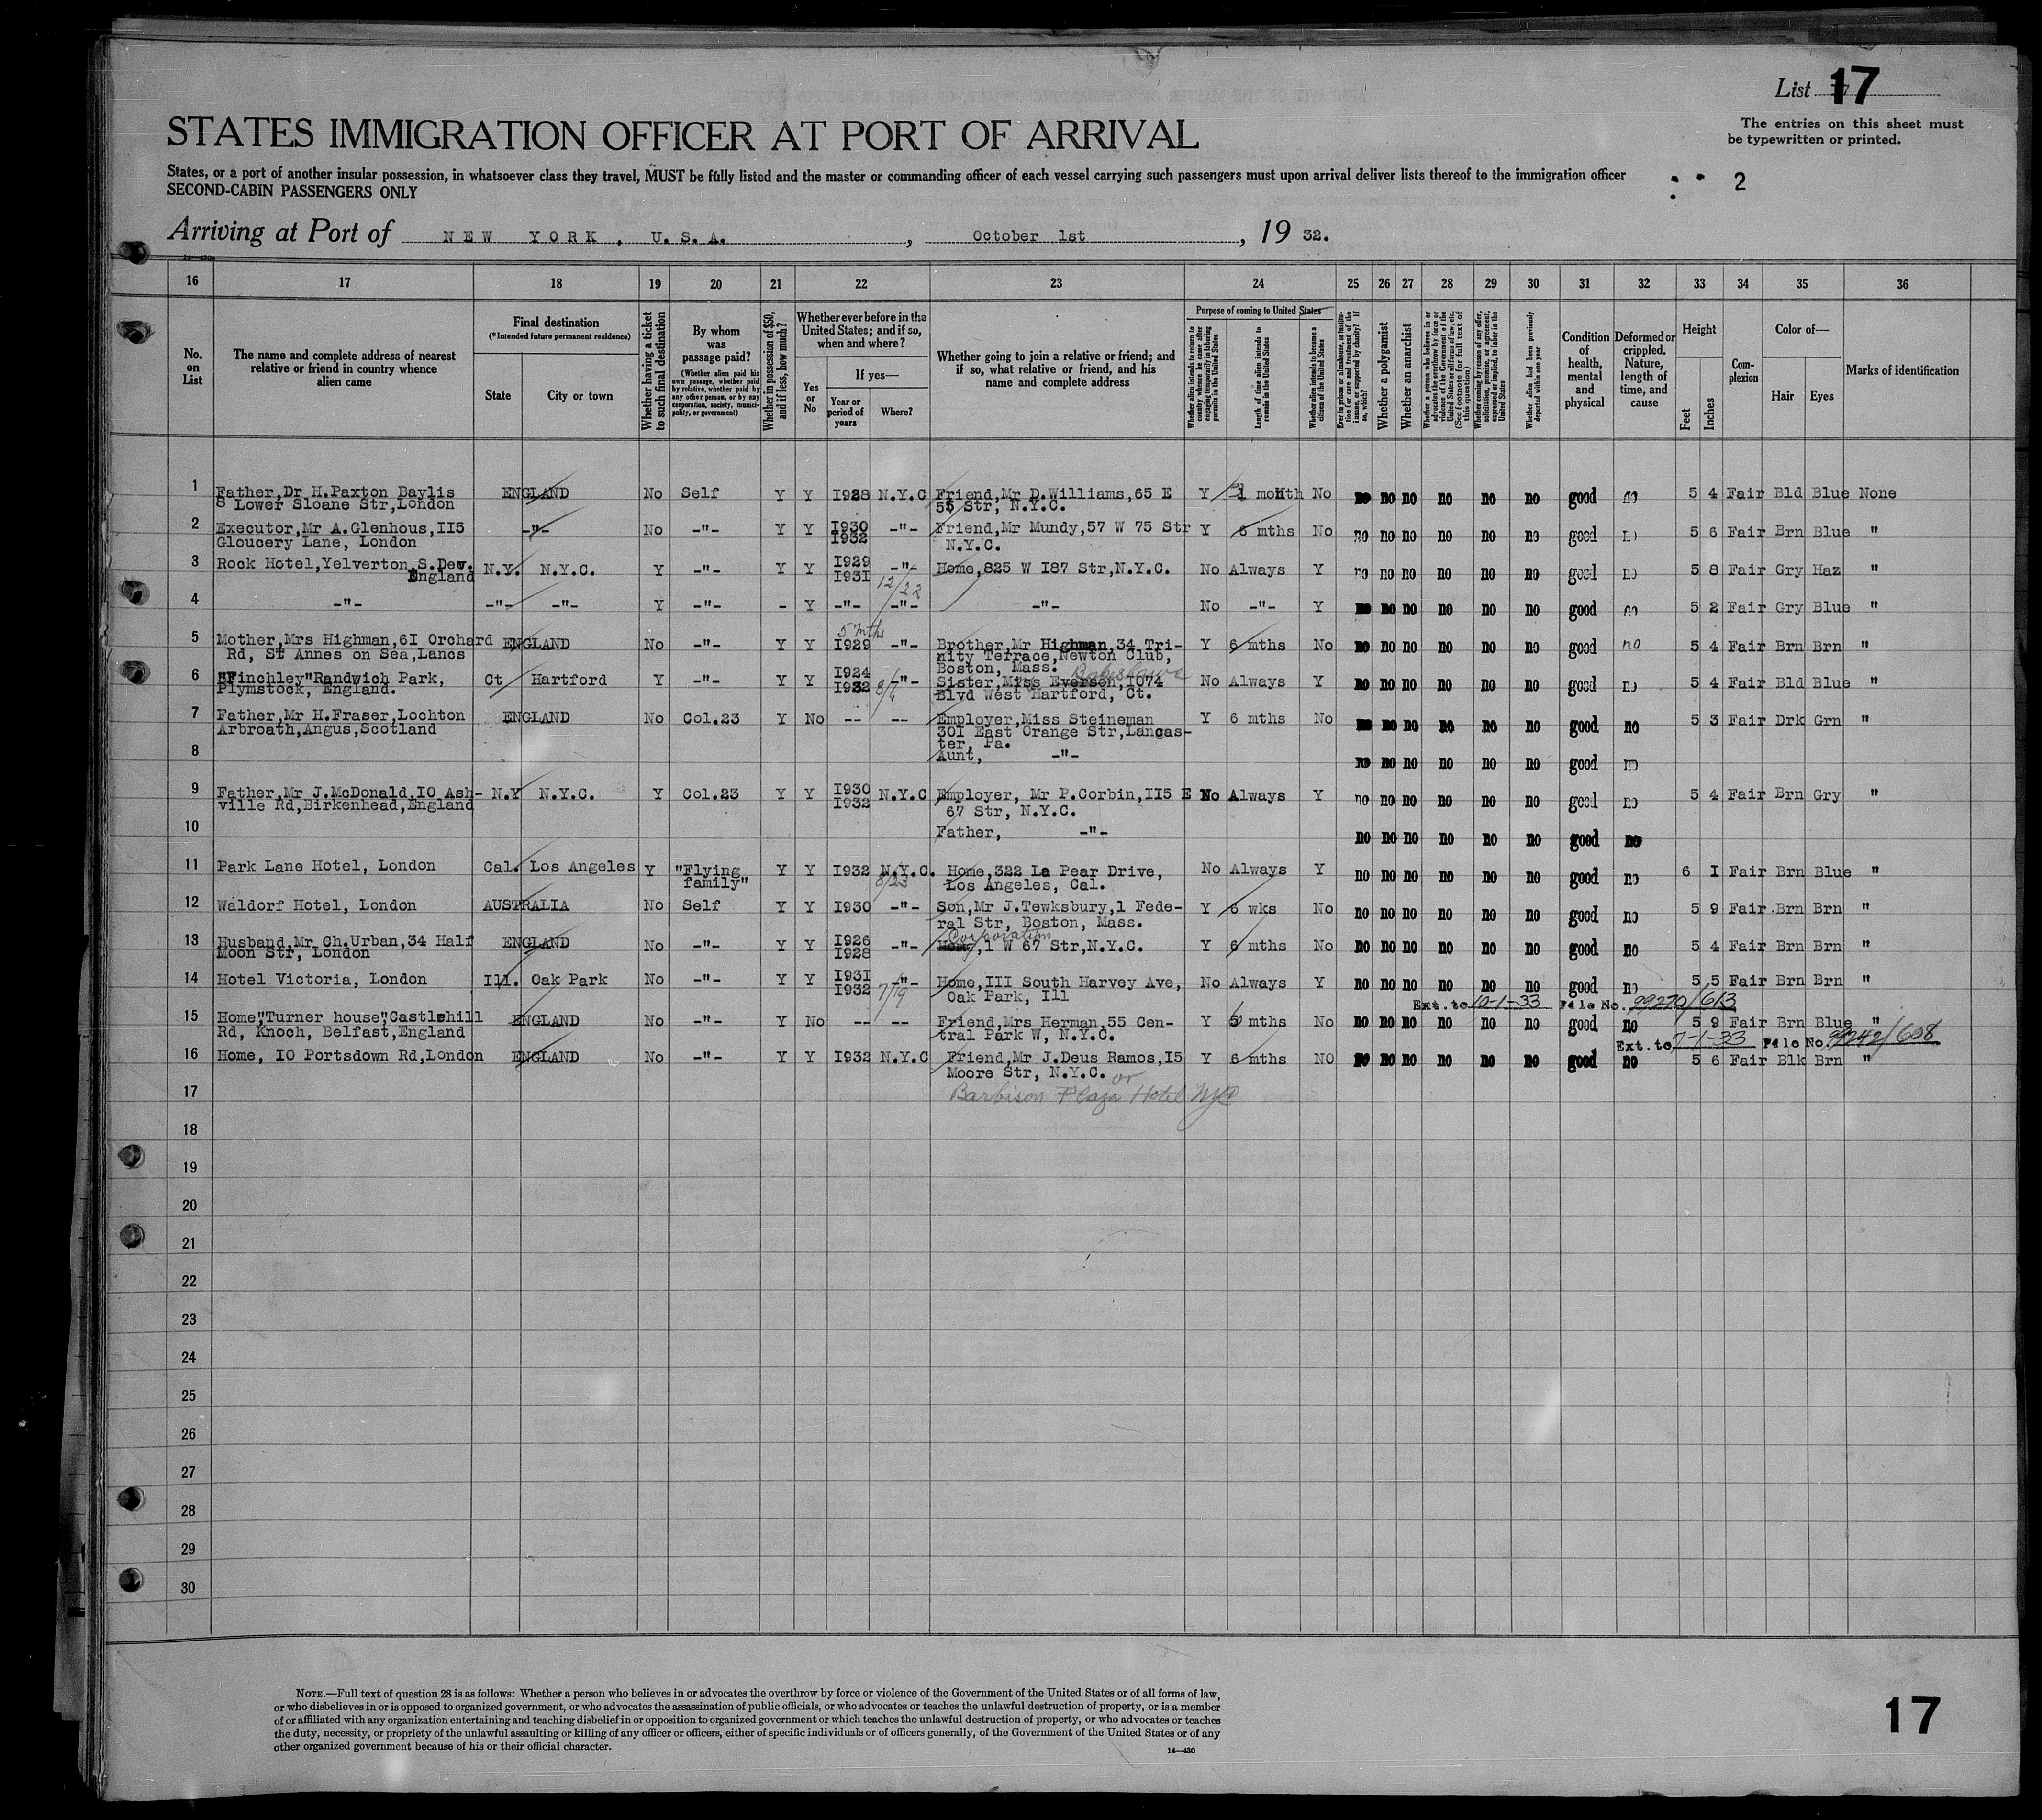 List 17
The entries on this sheet must
be typewritten or printed.
STATES IMMIGRATION OFFICER AT PORT OF ARRIVAL
States, or a port of another insular possession, in whatsoever class they travel, MUST be fully listed and the master or commanding officer of each vessel carrying such passengers must upon arrival deliver lists thereof to the immigration officer
SECOND-CABIN PASSENGERS ONLY
2
Arriving at Port of NEW YORK, U.S.A., October 1st, 19 32.
14—430
16 17 18 19 20 21 22 23 24 25 26 27 28 29 30 31 32 33 34 35 36
No. on List
The name and complete address of nearest relative or friend in country whence alien came
Final destination
(*Intended future permanent residence)
State
City or town
Whether having a ticket to such final destination
By whom was passage paid?
(Whether alien paid his own passage, whether paid by relative, whether paid by any other person, or by any corporation, society, municipality, or government)
Whether in possession of $50, and if less, how much?
Whether ever before in the United States; and if so, when and where?
Yes or No
If yes—
Year or period of years
Where?
Whether going to join a relative or friend; and if so, what relative or friend, and his name and complete address
Purpose of coming to United States
Whether alien intends to return to country whence he came after engaging temporarily in laboring pursuits in the United States
Length of time alien intends to remain in the United States
Whether alien intends to become a citizen of the United States
Whether a polygamist
Whether an anarchist
Whether alien had been previously deported within one year
Condition of health, mental and physical
Deformed or crippled. Nature, length of time, and cause
Height
Feet
Inches
Complexion
Color of—
Hair
Eyes
Marks of identification
1 Father,Dr H.Paxton Baylis ENGLAND No Self Y Y I928 N.Y.C Friend,Mr D.Williams,65 E Y month No no no no no no no good no 5 4 Fair Bld Blue None
8 Lower Sloane Str,London 55 Str, N.Y.C.
2 Executor,Mr A.Glenhous,II5 -"- No -"- Y Y I930 -"- Friend,Mr Mundy,57 W 75 Str Y 6 mths No no no no no no no good no 5 6 Fair Brn Blue "
Gloucery Lane, London I932 N.Y.C.
3 Rock Hotel,Yelverton,S.Dev. N.Y. N.Y.C. Y -"- Y Y I929 -"- Home,825 W I87 Str,N.Y.C. No Always Y no no no no no no good no 5 8 Fair Gry Haz "
England I931 12/22
4 -"- -"- -"- Y -"- - Y -"- -"- -"- No -"- Y no no no no no no good no 5 2 Fair Gry Blue "
5 mths
5 Mother,Mrs Highman,6I Orchard ENGLAND No -"- Y Y I929 -"- Brother,Mr Highman,34 Tri- Y 6 mths No no no no no no no good no 5 4 Fair Brn Brn "
Rd, St Annes on Sea,Lancs nity Terrace,Newton Club,
Boston, Mass.
6 "Finchley"Randwich Park, Ct Hartford Y -"- Y Y I924 -"- Sister,Miss Everson,1074 No Always Y no no no no no no good no 5 4 Fair Bld Blue "
Plymstock, England. I932 Blvd West Hartford, Ct.
7 Father,Mr H.Fraser,Lochton ENGLAND No Col.23 Y No -- -- Employer,Miss Steineman Y 6 mths No no no no no no no good no 5 3 Fair Drk Grn "
Arbroath,Angus,Scotland 30I East Orange Str,Lancas-
ter, Pa.
8 Aunt, -"- no no no no no no good no
9 Father,Mr J.McDonald,IO Ash- N.Y N.Y.C. Y Col.23 Y Y I930 N.Y.C Employer, Mr P.Corbin,II5 E No Always Y no no no no no no good no 5 4 Fair Brn Gry "
ville Rd,Birkenhead,England I932 67 Str, N.Y.C.
10 Father, -"- no no no no no no good no
11 Park Lane Hotel, London Cal. Los Angeles Y "Flying Y Y I932 N.Y.C. Home,322 La Pear Drive, No Always Y no no no no no no good no 6 I Fair Brn Blue "
family" 8/23 Los Angeles, Cal.
12 Waldorf Hotel, London AUSTRALIA No Self Y Y I930 -"- Son,Mr J.Tewksbury,1 Fede- Y 6 wks No no no no no no no good no 5 9 Fair Brn Brn "
ral Str, Boston, Mass.
13 Husband,Mr Ch.Urban,34 Half ENGLAND No -"- Y Y I926 -"- Corporation,1 W 67 Str,N.Y.C. Y 6 mths No no no no no no no good no 5 4 Fair Brn Brn "
Moon Str, London I928
14 Hotel Victoria, London Ill. Oak Park No -"- Y Y I931 -"- Home,III South Harvey Ave, No Always Y no no no no no no good no 5 5 Fair Brn Brn "
I932 7/19 Oak Park, Ill
Ext. to 10-1-33 File No. 99270/613
15 Home,"Turner house"Castlehill ENGLAND No -"- Y No -- -- Friend,Mrs Herman,55 Cen- Y mths No no no no no no no good no 5 9 Fair Brn Blue "
Rd, Knoch, Belfast,England tral Park W, N.Y.C.
Ext. to 7-1-33 File No.
16 Home, IO Portsdown Rd,London ENGLAND No -"- Y Y I932 N.Y.C Friend,Mr J.Deus Ramos,I5 Y 6 mths NO no no no no no no good no 5 6 Fair Blk Brn "
Moore Str, N.Y.C. or
17 Barbison Plaza Hotel NYC
18
19
20
21
22
23
24
25
26
27
28
29
30
NOTE.—Full text of question 28 is as follows: Whether a person who believes in or advocates the overthrow by force or violence of the Government of the United States or of all forms of law,
or who disbelieves in or is opposed to organized government, or who advocates the assassination of public officials, or who advocates or teaches the unlawful destruction of property, or is a member
of or affiliated with any organization entertaining and teaching disbelief in or opposition to organized government or which teaches the unlawful destruction of property, or who advocates or teaches
the duty, necessity, or propriety of the unlawful assaulting or killing of any officer or officers, either of specific individuals or of officers generally, of the Government of the United States or of any
other organized government because of his or their official character.
14—430
17